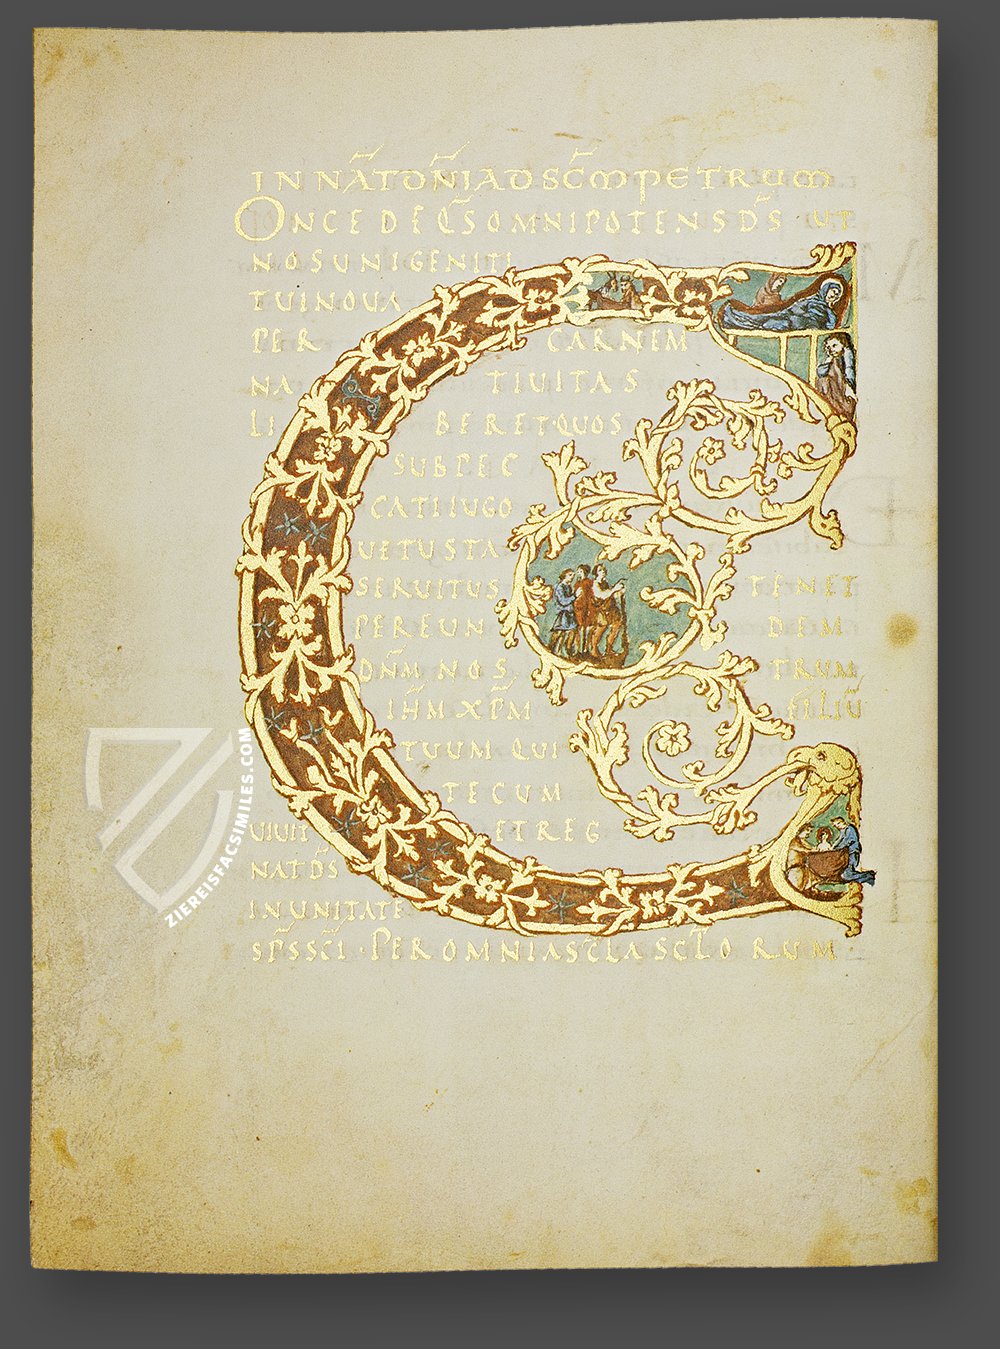 IN NAT DNI AD SCM PETRUM
ONCEDE QS OMNIPOTENS DS UT
NOS UNIGENITI
TUI NOUA
PER CARNEM
NA TIUITAS
LI BERET QUOS
SUB PEC
CATI IUGO
UETUSTA
SERUITUS TENET
PER EUN DEM
DNM NOS TRUM
IHM XPM FILIU
TUUM QUI
TECUM
UIUIT ET REG
NAT DS
IN UNITATE
SPS SCI · PER OMNIA SCLA SCLO RUM
ZIEREISFACSIMILES.COM